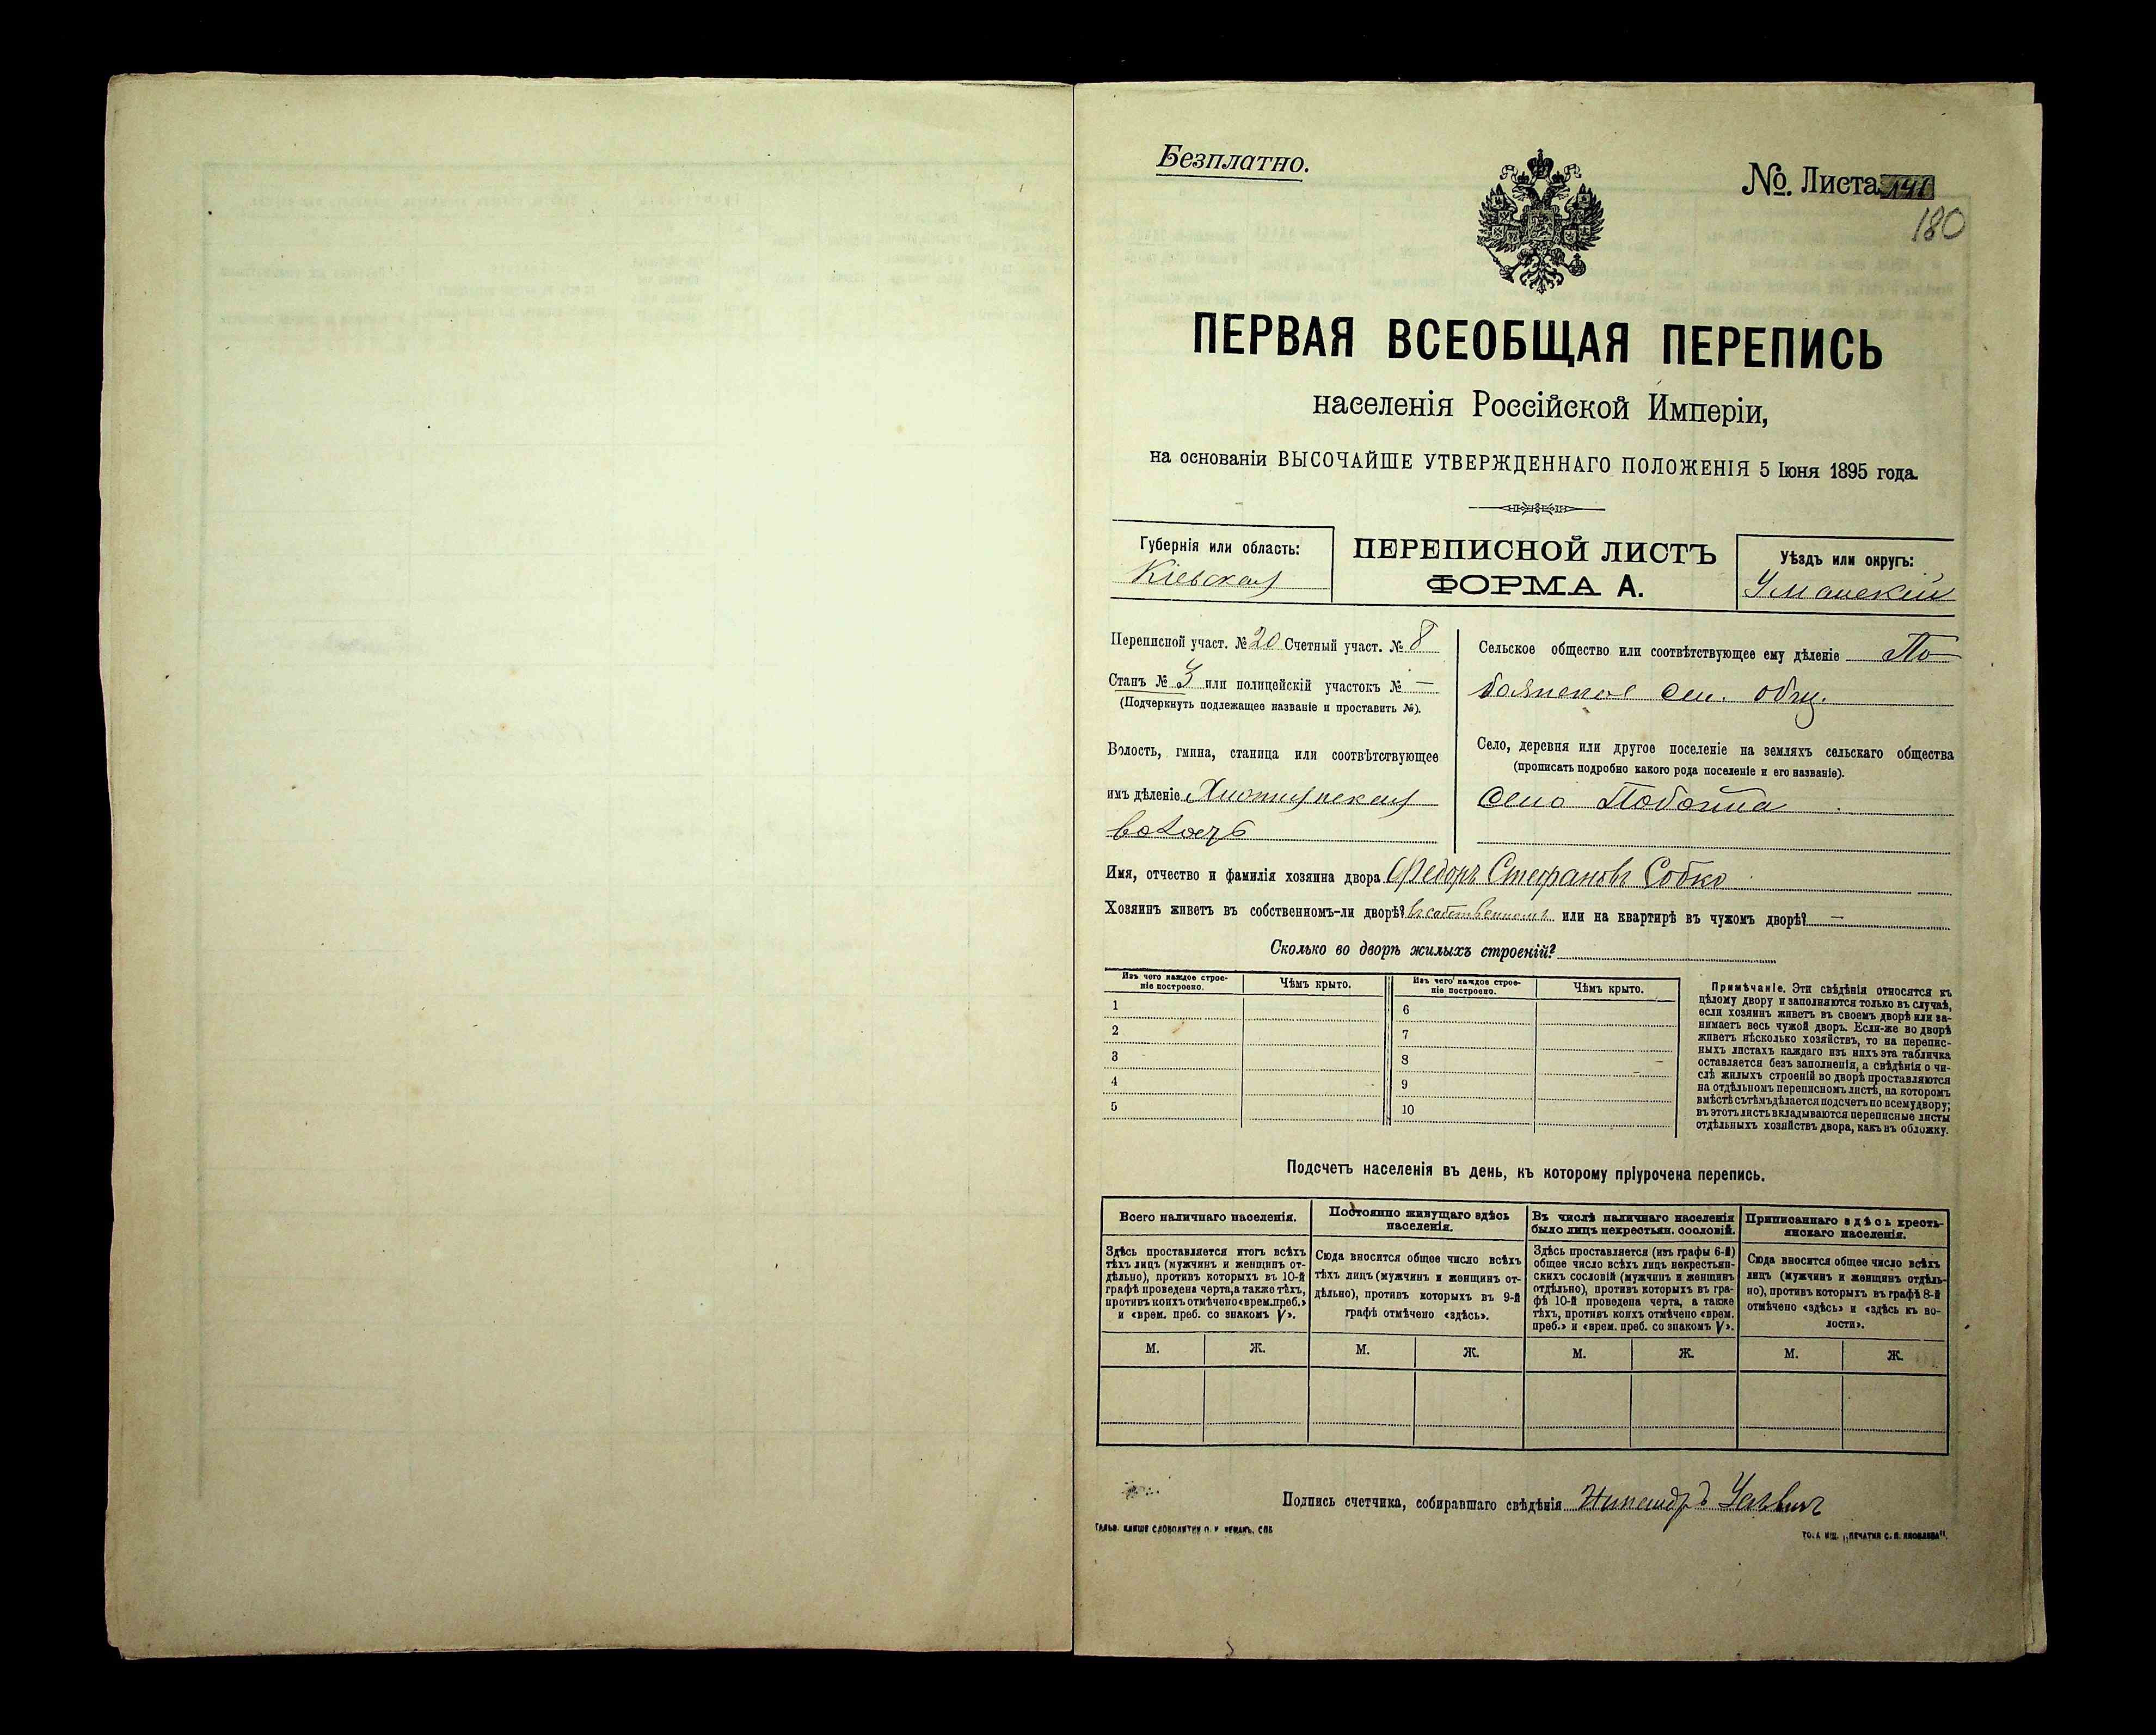 Безплатно.
№. Листа 141
180
ПЕРВАЯ ВСЕОБЩАЯ ПЕРЕПИСЬ
населенія Россійской Имперіи,
на основаніи ВЫСОЧАЙШЕ УТВЕРЖДЕННАГО ПОЛОЖЕНІЯ 5 Іюня 1895 года.
Губернія или область:
Кіевская
ПЕРЕПИСНОЙ ЛИСТЪ
ФОРМА А.
Уѣздъ или округъ:
Уманскій
Переписной участ. № 20 Счетный участ. № 8
Станъ № 3 или полицейскій участокъ № —
(Подчеркнуть подлежащее названіе и проставить №).
Волость, гмина, станица или соотвѣтствующее
имъ дѣленіе
волость
Сельское общество или соотвѣтствующее ему дѣленіе По-
боянское сел. общ.
Село, деревня или другое поселеніе на земляхъ сельскаго общества
(прописать подробно какого рода поселеніе и его названіе).
село Побойна
Имя, отчество и фамилія хозяина двора Федоръ Стефановъ Собко
Хозяинъ живетъ въ собственномъ-ли дворѣ? въ собственномъ или на квартирѣ въ чужомъ дворѣ? —
Сколько во дворѣ жилыхъ строеній?
Изъ чего каждое строе-
ніе построено.
Чѣмъ крыто.
Изъ чего каждое строе-
ніе построено.
Чѣмъ крыто.
1
2
3
4
5
6
7
8
9
10
Примѣчаніе. Эти свѣдѣнія относятся къ
цѣлому двору и заполняются только въ случаѣ,
если хозяинъ живетъ въ своемъ дворѣ или за-
нимаетъ весь чужой дворъ. Если-же во дворѣ
живетъ нѣсколько хозяйствъ, то на перепис-
ныхъ листахъ каждаго изъ нихъ эта табличка
оставляется безъ заполненія, а свѣдѣнія о чи-
слѣ жилыхъ строеній во дворѣ проставляются
на отдѣльномъ переписномъ листѣ, на которомъ
вмѣстѣ съ тѣмъ дѣлается подсчетъ по всему двору;
въ этотъ листъ вкладываются переписные листы
отдѣльныхъ хозяйствъ двора, какъ въ обложку.
Подсчетъ населенія въ день, къ которому пріурочена перепись.
Всего наличнаго населенія.
Здѣсь проставляется итогъ всѣхъ
тѣхъ лицъ (мужчинъ и женщинъ от-
дѣльно), противъ которыхъ въ 10-й
графѣ проведена черта, а также тѣхъ,
противъ коихъ отмѣчено «врем. преб.»
и «врем. преб. со знакомъ V».
Постоянно живущаго здѣсь
населенія.
Сюда вносится общее число всѣхъ
тѣхъ лицъ (мужчинъ и женщинъ от-
дѣльно), противъ которыхъ въ 9-й
графѣ отмѣчено «здѣсь».
Въ числѣ наличнаго населенія
было лицъ некрестьян. сословій.
Здѣсь проставляется (изъ графы 6-й)
общее число всѣхъ лицъ некрестьян-
скихъ сословій (мужчинъ и женщинъ
отдѣльно), противъ которыхъ въ гра-
фѣ 10-й проведена черта, а также
тѣхъ, противъ коихъ отмѣчено «врем.
преб.» и «врем. преб. со знакомъ V».
Приписаннаго здѣсь кресть-
янскаго населенія.
Сюда вносится общее число всѣхъ
лицъ (мужчинъ и женщинъ отдѣль-
но), противъ которыхъ въ графѣ 8-й
отмѣчено «здѣсь» и «здѣсь къ во-
лости».
М. Ж. М. Ж. М. Ж. М. Ж.
Подпись счетчика, собиравшаго свѣдѣнія